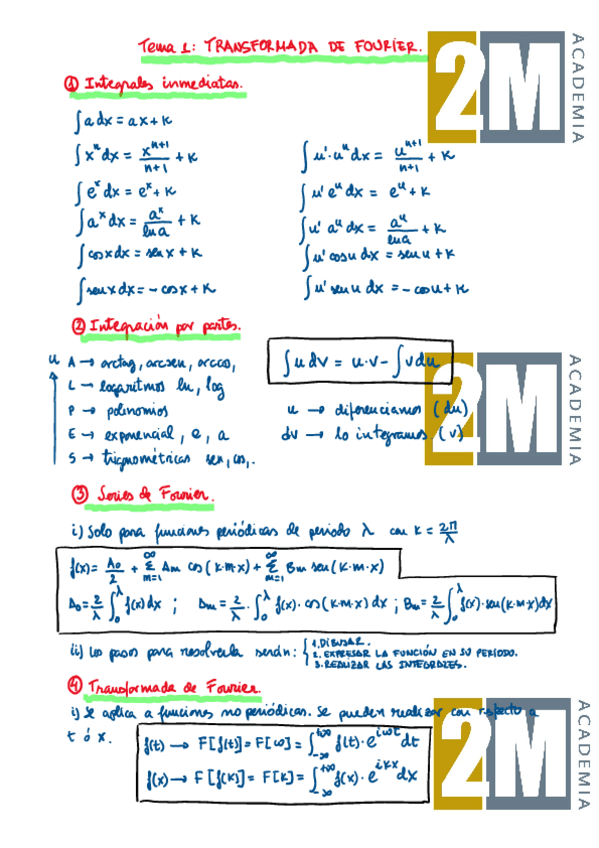 Tema 1: TRANSFORMADA DE FOURIER.
2M ACADEMIA
① Integrales inmediatas.
∫a dx = ax + K
∫xⁿ dx = xⁿ⁺¹/n+1 + K    ∫u'·uⁿ dx = uⁿ⁺¹/n+1 + K
∫eˣ dx = eˣ + K    ∫u' eᵘ dx = eᵘ + K
∫aˣ dx = aˣ/ln a + K    ∫u' aᵘ dx = aᵘ/ln a + K
∫cos x dx = sen x + K    ∫u' cos u dx = sen u + K
∫sen x dx = - cos x + K    ∫u' sen u dx = - cos u + K
② Integración por partes.
u A → arctag, arcsen, arccos,    ∫u dv = u·v - ∫v du
2M ACADEMIA
L → logaritmos ln, log
P → polinomios    u → diferenciamos (du)
E → exponencial, e, a    dv → lo integramos (v)
S → trigonométricas sen, cos,.
③ Series de Fourier.
i) Solo para funciones periódicas de periodo λ con K = 2π/λ
f(x) = A₀/2 + Σ_{m=1}^{∞} Am cos(K·m·x) + Σ_{m=1}^{∞} Bm sen(K·m·x)
A₀ = 2/λ ∫₀^λ f(x) dx ; Am = 2/λ · ∫₀^λ f(x)·cos(K·m·x) dx ; Bm = 2/λ ∫₀^λ f(x)·sen(K·m·x) dx
ii) Los pasos para resolverla serán: { 1. DIBUJAR.
2. EXPRESAR LA FUNCIÓN EN SU PERÍODO.
3. REALIZAR LAS INTEGRALES.
④ Transformada de Fourier.
i) Se aplica a funciones no periódicas. Se pueden realizar con respecto a
t ó x.
f(t) → F[f(t)] = F[ω] = ∫_{-∞}^{+∞} f(t)·e^{iωt} dt
f(x) → F[f(K)] = F[K] = ∫_{-∞}^{+∞} f(x)·e^{iKx} dx
2M ACADEMIA